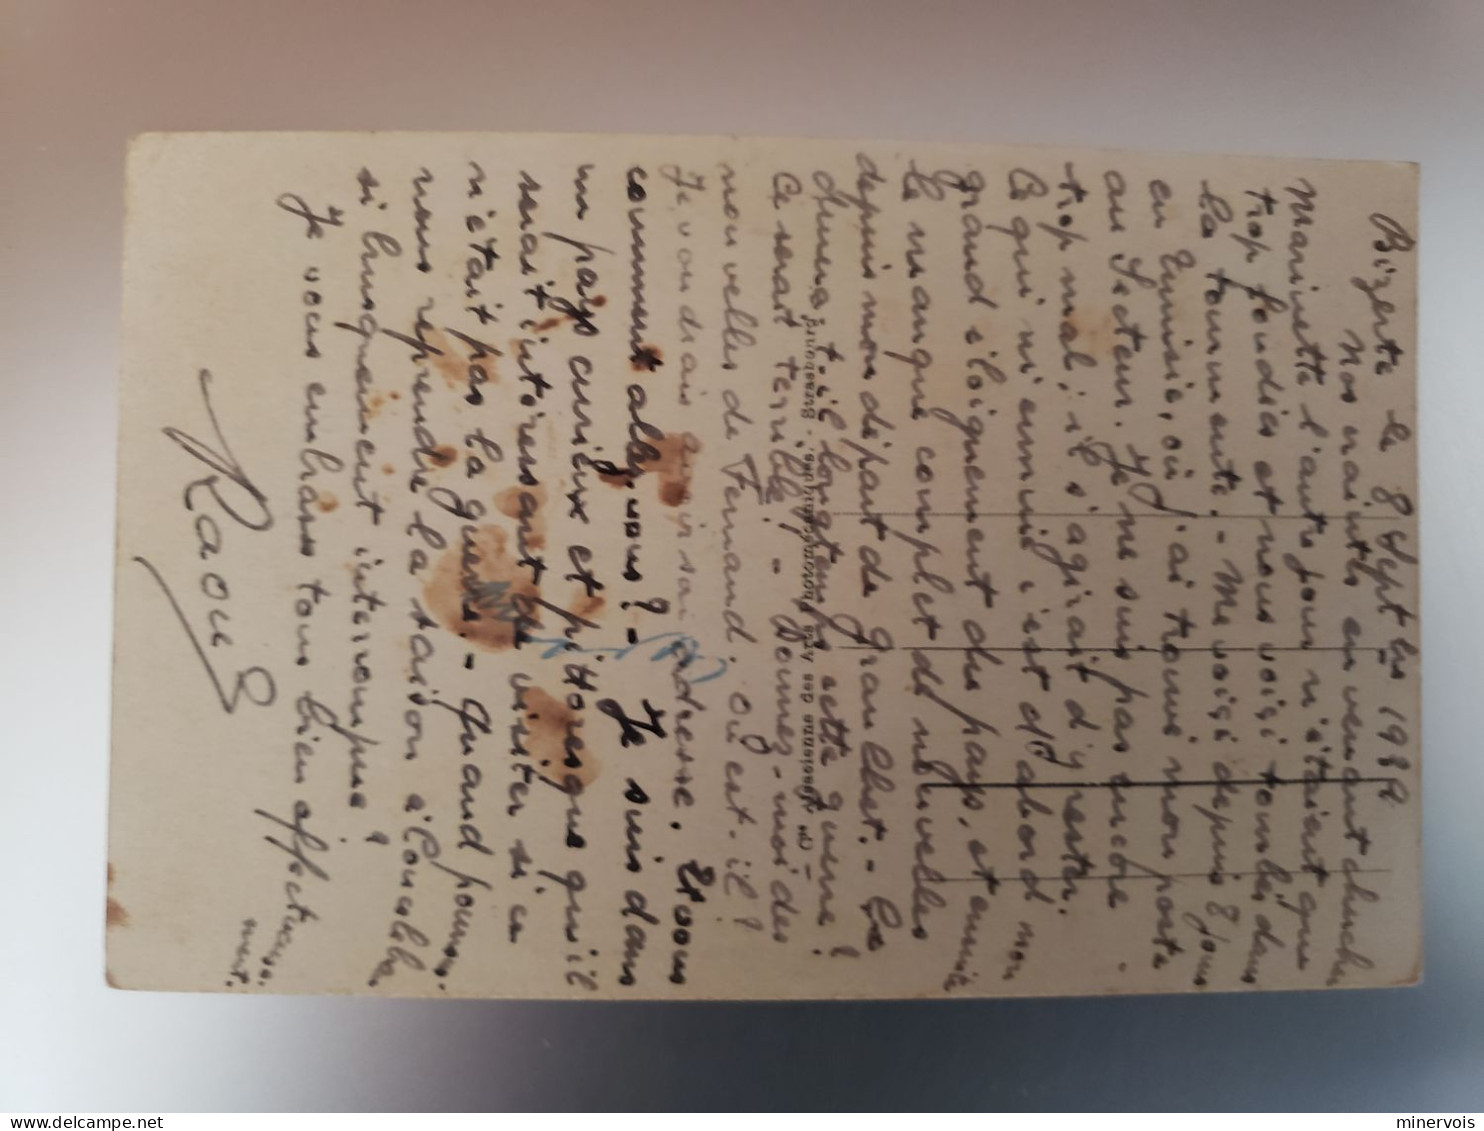 Bizerte le 8 Septbre 1939
Nos craintes en venant chercher
Marinette l'autre jour n'étaient que
trop fondées et nous voici tombés dans
la tourmente. - Me voici depuis 8 jours
en Tunisie, où j'ai trouvé mon poste
au Secteur. Je ne suis pas encore
trop mal, il s'agirait d'y rester.
Ce qui m'ennuie c'est d'abord mon
grand éloignement du pays, et ensuite
le manque complet de nouvelles
depuis mon départ de Graulhet. - La
durera-t-il longtemps cette guerre !
Ce serait terrible ! - Donnez-moi des
nouvelles de Fernand. Où est-il ?
Je voudrais avoir son adresse. Et vous
comment allez-vous ? - Je suis dans
un pays curieux et pittoresque qu'il
serait intéressant de visiter si ce
n'était pas la guerre. - Quand pourrons-
nous reprendre la saison à Lamalou
si brusquement interrompue ?
Je vous embrasse tous bien affectueuse-
ment.
Raoul
Cie Alsacienne des Arts Photomécaniques - Strasbourg
minervois